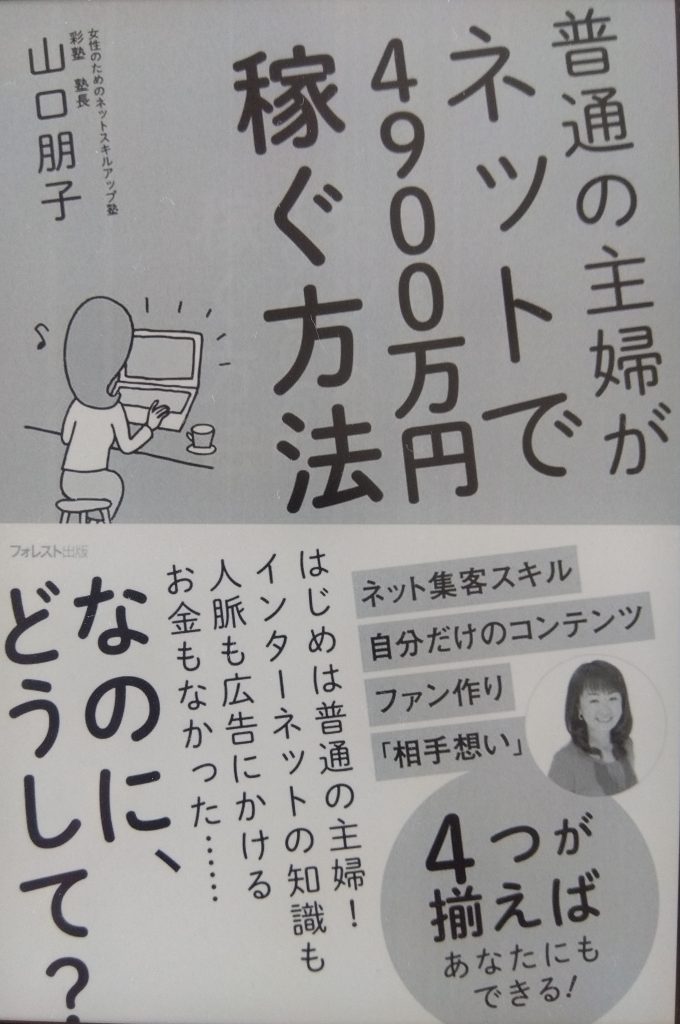 普通の主婦が
ネットで
4900万円
稼ぐ方法
女性のためのネットスキルアップ塾
彩塾 塾長
山口朋子
フォレスト出版
ネット集客スキル
自分だけのコンテンツ
ファン作り
「相手想い」
4つが
揃えば
あなたにも
できる!
はじめは普通の主婦!
インターネットの知識も
人脈も広告にかける
お金もなかった……
なのに、
どうして?